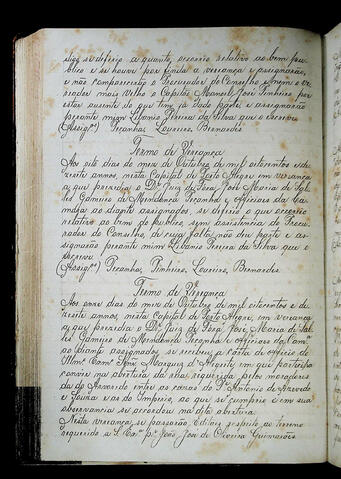 se deferio a quanto, ocorreo relativo ao bem pu-
blico e se houve por finda a vereança e assignarão,
e não compareceo o Procurador do Conselho e nem o ve-
riador mais velho o Capitão Manoel José Pinheiro por
estar ausente do que tem já dado parte, e assignarão
perante mim Libanio Pereira da Silva que o escrevi
(Assigs.) Peçanha, Loureiro, Bernardes
Termo de Vereança
Aos oito dias do mez de Outubro de mil oitocentos e de-
zesete annos, nesta Capital de Porto Alegre, em vereança
a que prezidio o Dr. Juiz de Fora José Maria de Sal-
les Gameiro de Mendonça Peçanha e Officiaes da Ca-
mara ao diante assignados, se deferio o que ocorreo
relativo ao bem publico, sem assistencia do Procu-
rador do Conselho, de cuja falta não deu parte e as-
signarão perante mim Libanio Pereira da Silva que o
escrevi
(Assigs.) Peçanha, Pinheiro, Loureiro, Bernardes
Termo de Vereança
Aos onze dias do mez de Outubro de mil oitocentos e de-
zesete annos, nesta Capital de Porto Alegre, em vereança
a que prezidio o Dr. Juiz de Fora José Maria de Sal-
les Gameiro de Mendonça Peçanha e Officiaes da Camª
ao diante assignados se recebeu a carta de officio do
Snr. Marquez d'Alegrete em que participa
convir na abertura da rua requerida pelos moradores
da do Arvoredo entre as cazas do Pe. Antonio de Azevedo
e Souza e as do Imperio, ao que se cumprio e em sua
observancia se acordou na dita abertura.
Nesta vereança se passarão Editaes respeito ao terreno
requerido a S. Exª pr. João José de Oliveira Guimarães